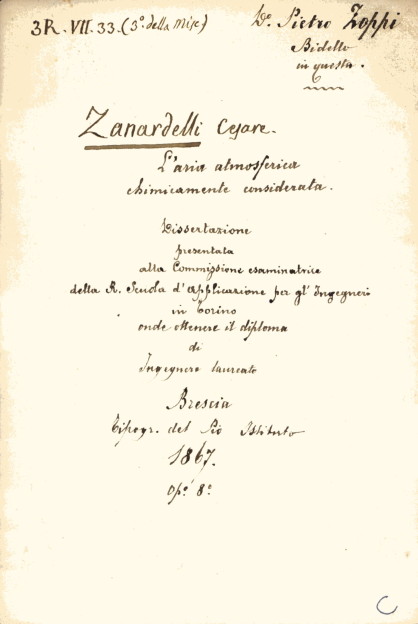 3R. VII. 33. (3º. della Misc)
Dº. Pietro Zoppi
Bidello
in questa.
Zanardelli Cesare.
L'aria atmosferica
chimicamente considerata.
Dissertazione
presentata
alla Commissione esaminatrice
della R. Scuola d'Applicazione per gl'Ingegneri
in Torino
onde ottenere il diploma
di
Ingegnere laureato
Brescia
Tipogr. del Pio Istituto
1867.
Opº. 8º
C